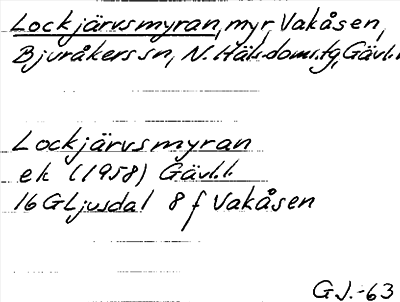 Lockjärvsmyran, myr, Vakåsen,
Bjuråkers sn, N. Häls. doms.tg, Gävl.l
Lockjärvsmyran
ek (1958) Gävl.l.
16G Ljusdal 8 f Vakåsen
G J.-63